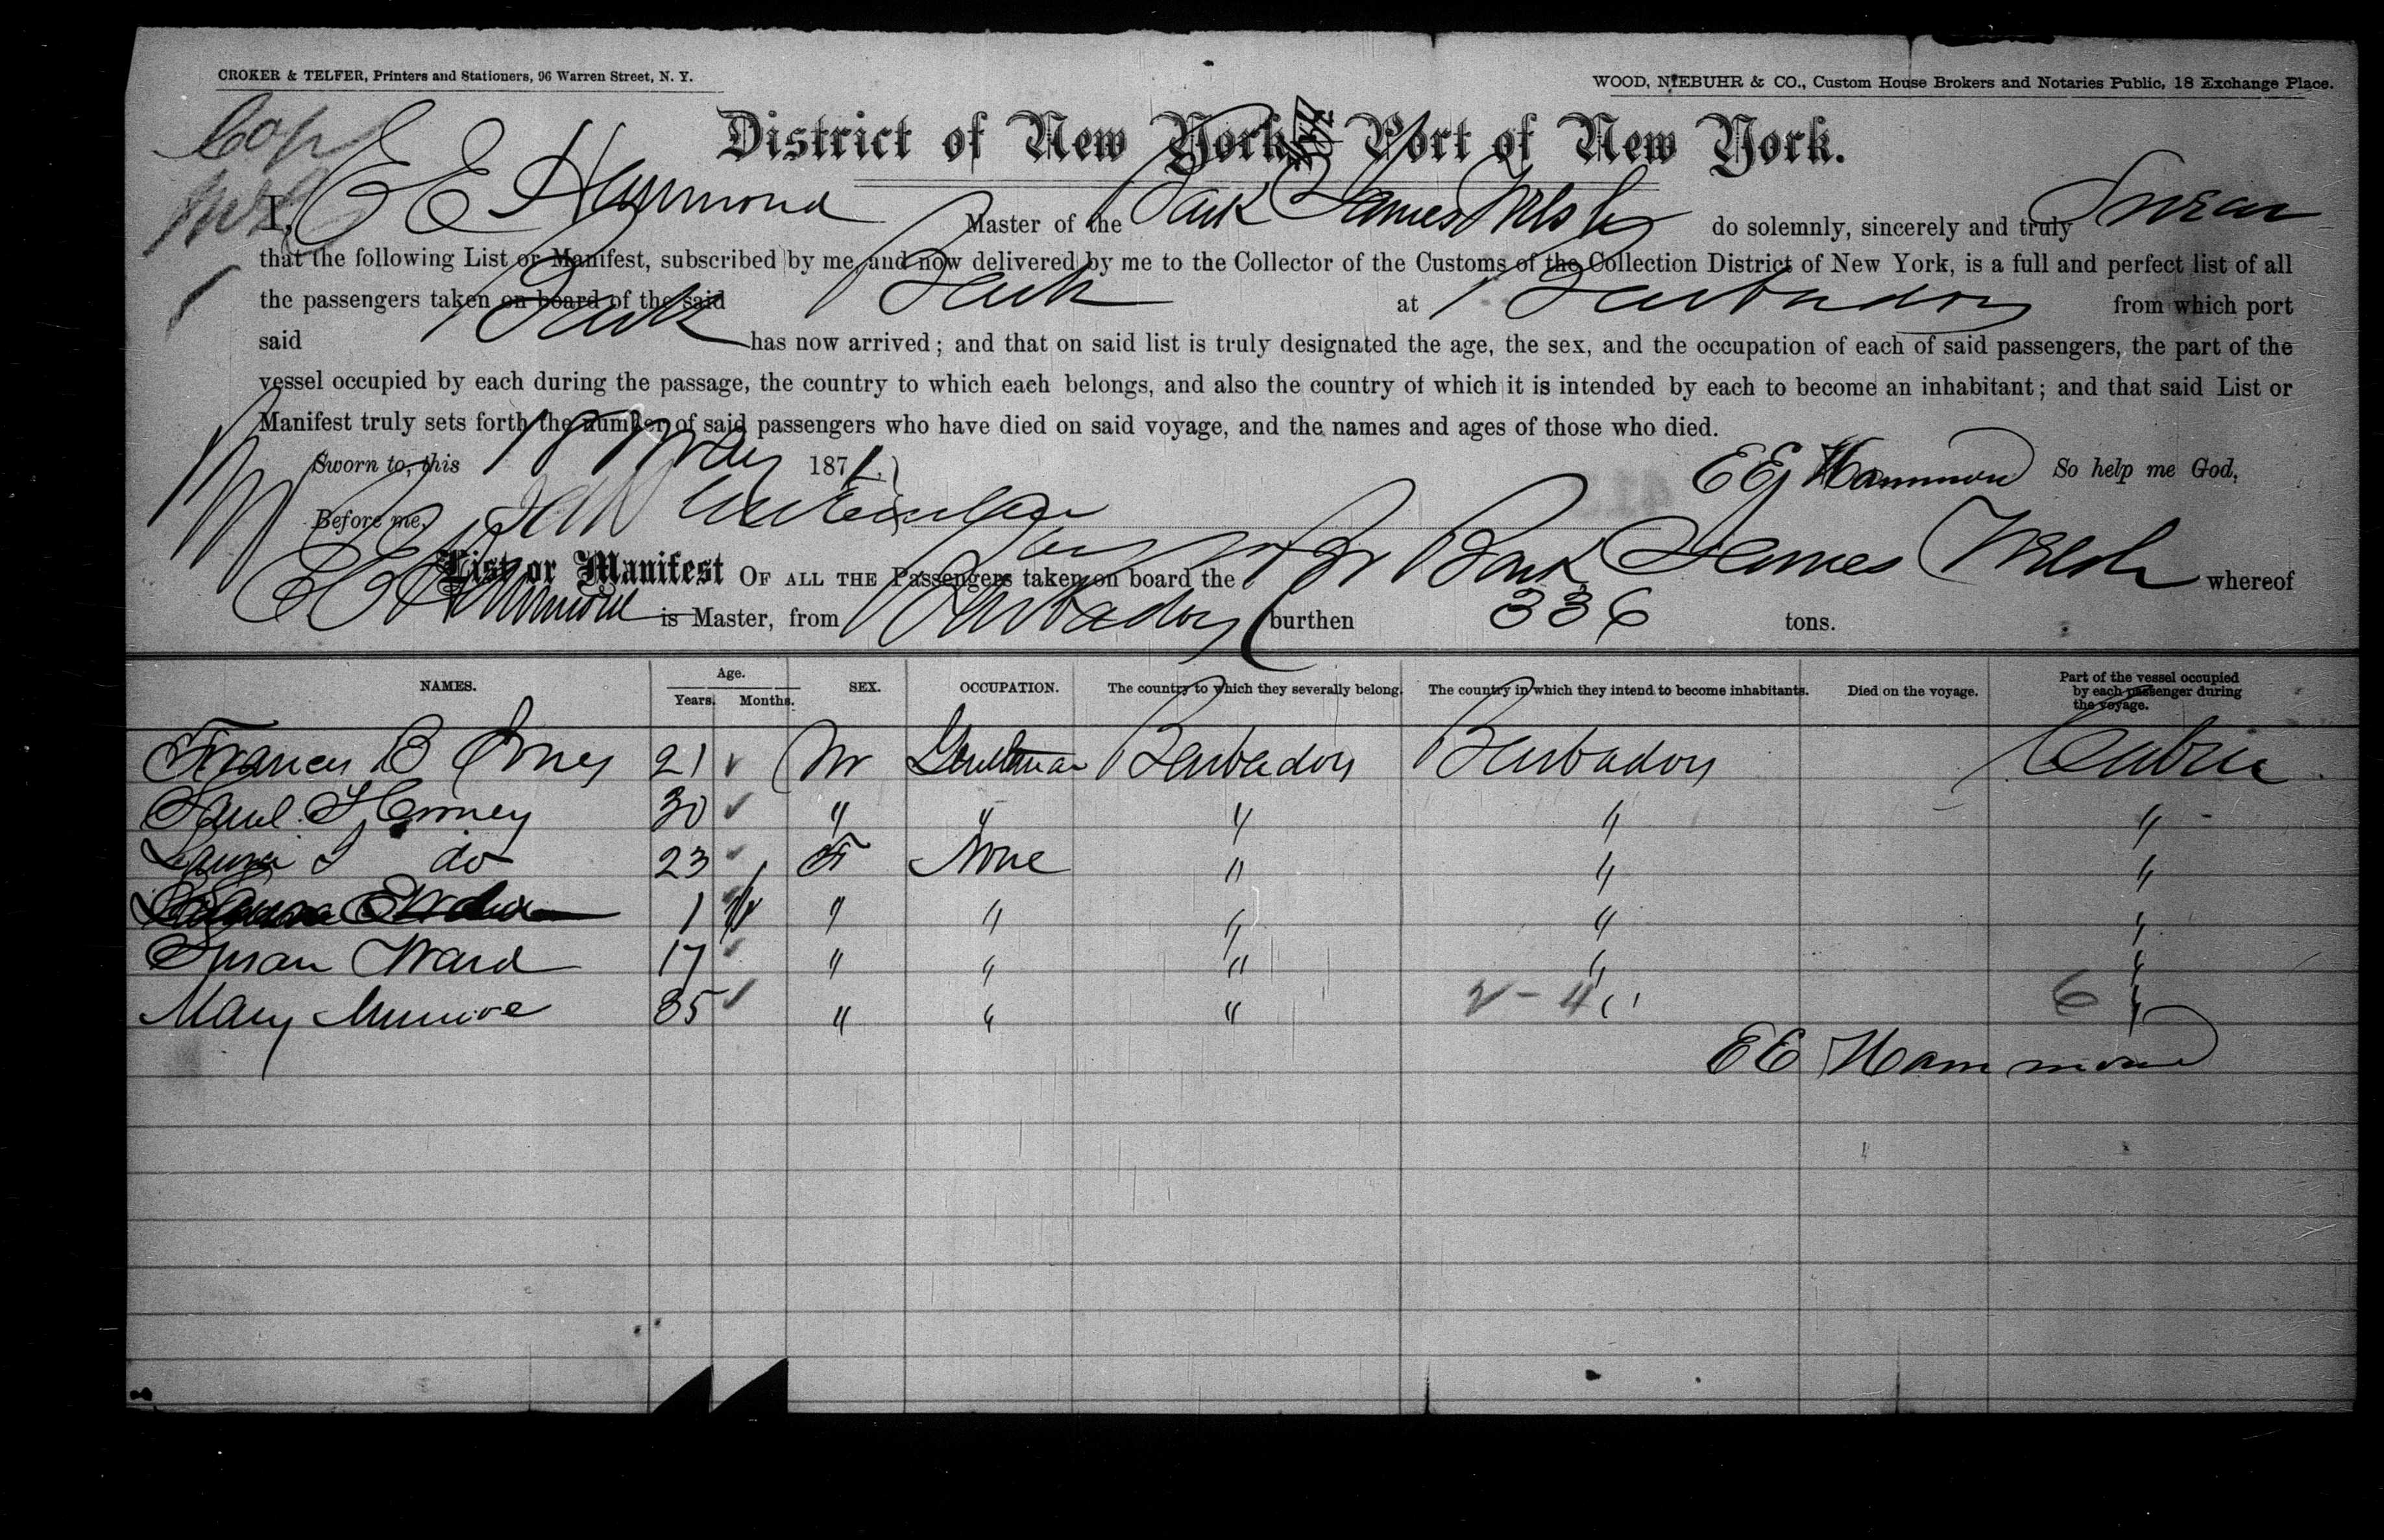 CROKER & TELFER, Printers and Stationers, 96 Warren Street, N. Y.
WOOD, NIEBUHR & CO., Custom House Brokers and Notaries Public, 18 Exchange Place.
District of New York Port of New York.
I, E E Hammond Master of the Bark James Welsh do solemnly, sincerely and truly Swear
that the following List or Manifest, subscribed by me, and now delivered by me to the Collector of the Customs of the Collection District of New York, is a full and perfect list of all
the passengers taken on board of the said Bark at Barbados from which port
said Bark has now arrived; and that on said list is truly designated the age, the sex, and the occupation of each of said passengers, the part of the
vessel occupied by each during the passage, the country to which each belongs, and also the country of which it is intended by each to become an inhabitant; and that said List or
Manifest truly sets forth the number of said passengers who have died on said voyage, and the names and ages of those who died.
Sworn to, this 18 May 1871. E E Hammond So help me God,
Before me,
List or Manifest OF ALL THE Passengers taken on board the Br Bark James Welsh whereof
E E Hammond is Master, from Barbados burthen 336 tons.
NAMES. Age. Years. Months. SEX. OCCUPATION. The country to which they severally belong. The country in which they intend to become inhabitants. Died on the voyage. Part of the vessel occupied by each passenger during the voyage.
Francis B 21 M Gentleman Barbados Barbados Cabin
30 " " " " "
Laura do 23 F None " " "
1 " " " " "
Susan Ward 17 " " " " "
Mary Munroe 35 " " " 2 - 4 " 6 "
E E Hammond